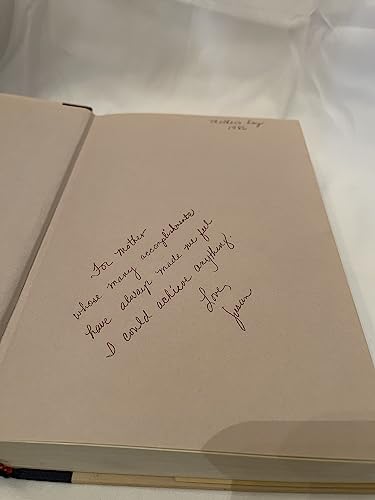 Mother's Day
1986
For Mother
whose many accomplishments
have always made me feel
I could achieve anything.
Love,